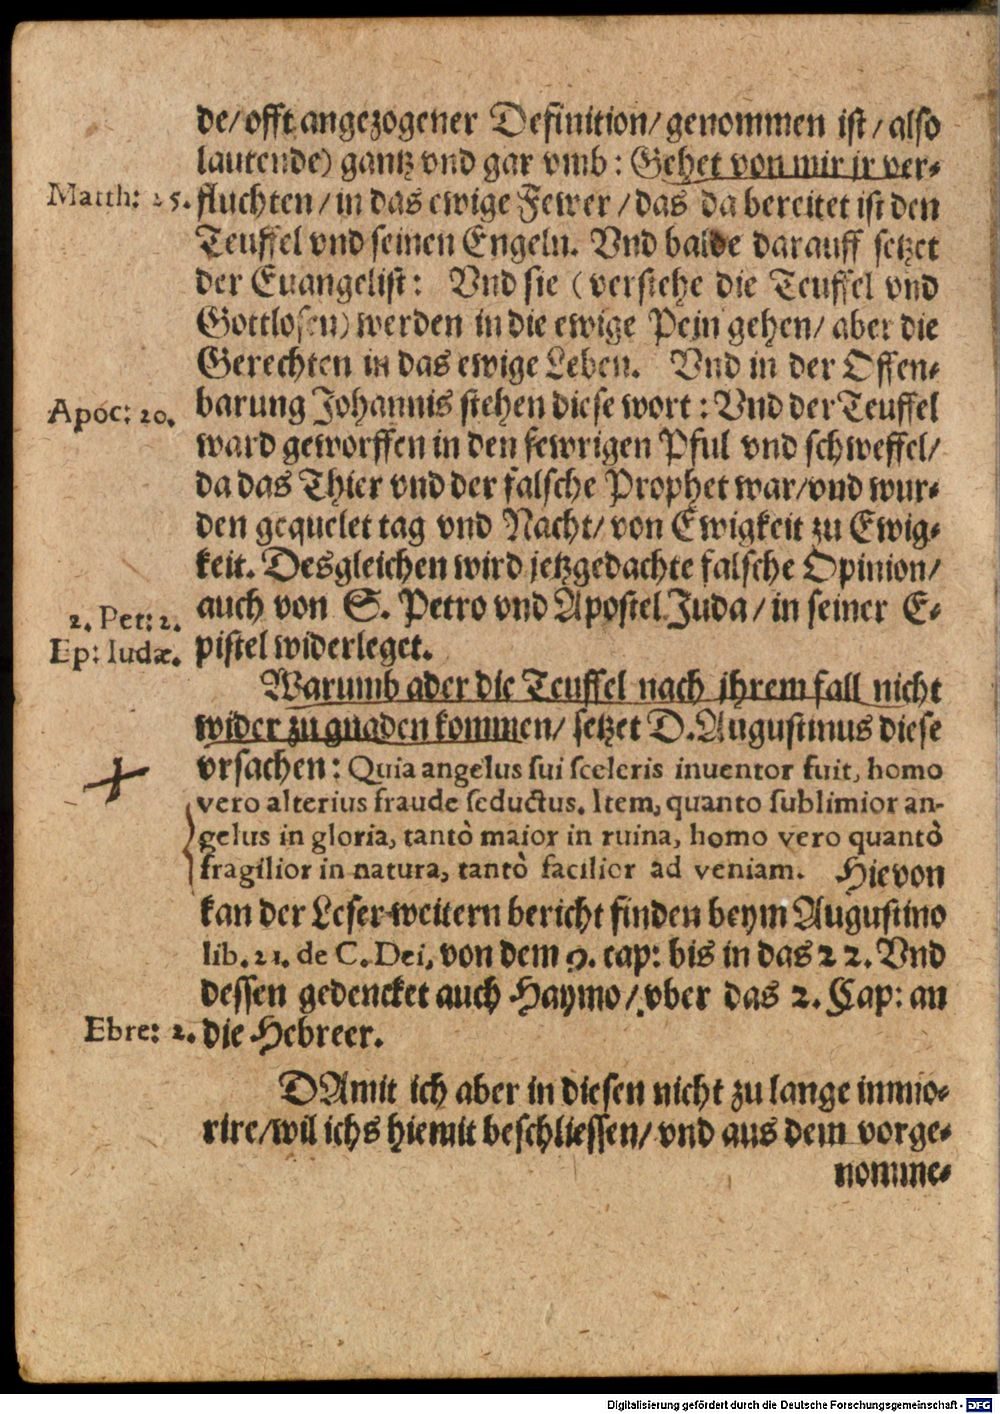 de/ offt angezogener Definition/ genommen ist/ also
lautende) gantz vnd gar vmb: Gehet von mir ir ver⸗
Matth: 25. fluchten/ in das ewige Fewer/ das da bereitet ist den
Teuffel vnd seinen Engeln. Vnd balde darauff setzet
der Euangelist: Vnd sie (verstehe die Teuffel vnd
Gottlosen) werden in die ewige Pein gehen/ aber die
Gerechten in das ewige Leben. Vnd in der Offen⸗
Apoc: 20. barung Johannis stehen diese wort: Vnd der Teuffel
ward geworffen in den fewrigen Pful vnd schweffel/
da das Thier vnd der falsche Prophet war/ vnd wur⸗
den gequelet tag vnd Nacht/ von Ewigkeit zu Ewig⸗
keit. Desgleichen wird jetzgedachte falsche Opinion/
2. Pet: 2. auch von S. Petro vnd Apostel Juda/ in seiner E⸗
Ep: Iudæ. pistel widerleget.
Warumb aber die Teuffel nach ihrem fall nicht
wider zu gnaden kommen/ setzet D. Augustinus diese
vrsachen: Quia angelus sui sceleris inuentor fuit, homo
vero alterius fraude seductus. Item, quanto sublimior an-
gelus in gloria, tantò maior in ruina, homo vero quantò
fragilior in natura, tantò facilior ad veniam. Hievon
kan der Leser weitern bericht finden beym Augustino
lib. 21. de C. Dei, von dem 9. cap: bis in das 22. Vnd
dessen gedencket auch Haymo/ vber das 2. Cap: an
Ebre: 2. die Hebreer.
DAmit ich aber in diesen nicht zu lange immo⸗
rire/ wil ichs hiemit beschliessen/ vnd aus dem vorge⸗
nomme⸗
Digitalisierung gefördert durch die Deutsche Forschungsgemeinschaft - DFG